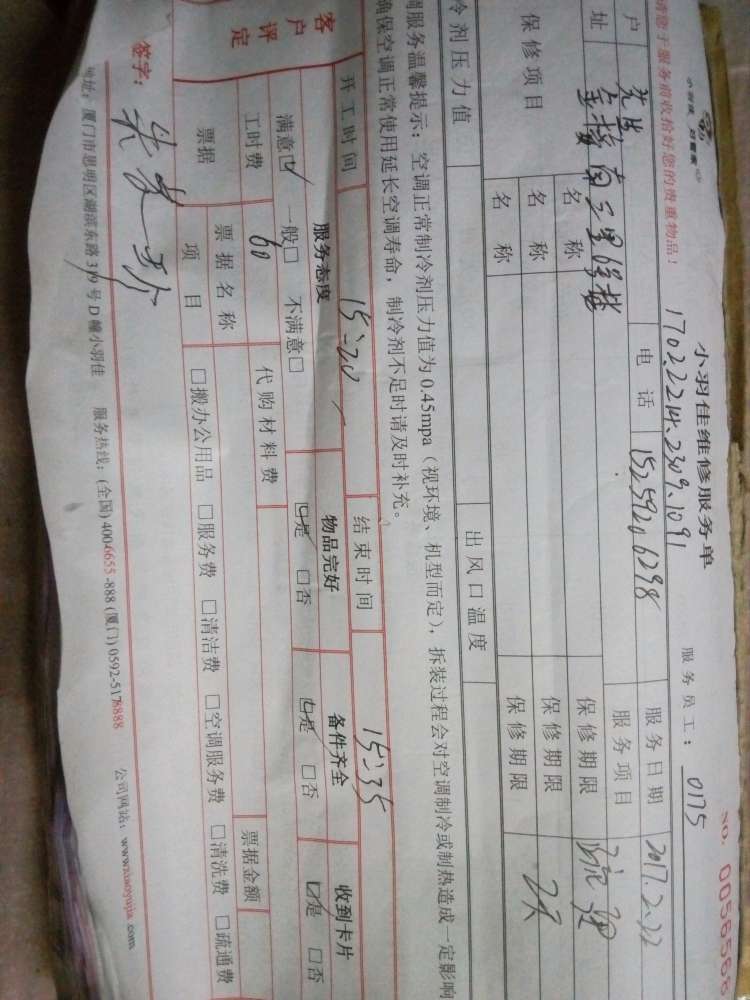 小羽佳 好管家
小羽佳维修服务单
NO. 0056568
请您于服务前收拾好您的贵重物品！
1702.2214.2309.1091
服务员工：0175
户
先生
电话
15259206298
服务日期
2017.2.22
址
南三里
服务项目
疏通
保修项目
名称
保修期限
名称
保修期限
2天
名称
保修期限
冷剂压力值
出风口温度
调服务温馨提示：空调正常制冷剂压力值为0.45mpa（视环境、机型而定），拆装过程会对空调制冷或制热造成一定影响
确保空调正常使用延长空调寿命，制冷剂不足时请及时补充。
开工时间
15:20
结束时间
15:35
客户评定
服务态度
物品完好
备件齐全
收到卡片
满意☑ 一般□ 不满意□
☑是 □否
☑是 □否
☑是 □否
工时费
60
代购材料费
票据金额
票据
票据名称
项目
□搬办公用品 □服务费 □清洁费 □空调服务费 □清洗费 □疏通费
签字：
地址：厦门市思明区湖滨东路319号D幢小羽佳 服务热线：(全国) 4006655-888 (厦门) 0592-5178888 公司网站：www.xiaoyujia.com